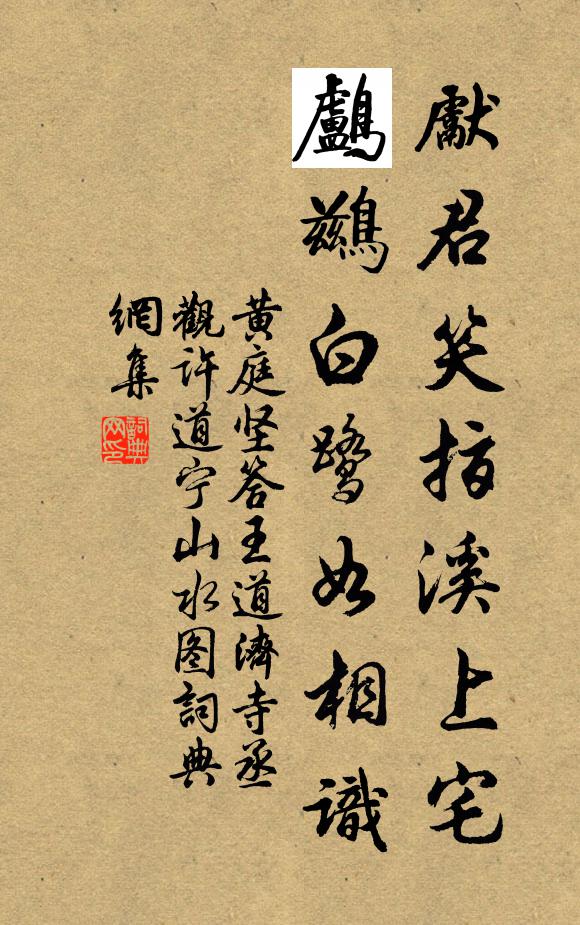 獻君笑指溪上宅
鸕鷀白鷺如相識
黄庭坚答王道濟寺丞
觀许道宁山水图詞典
網集
詞典
网印